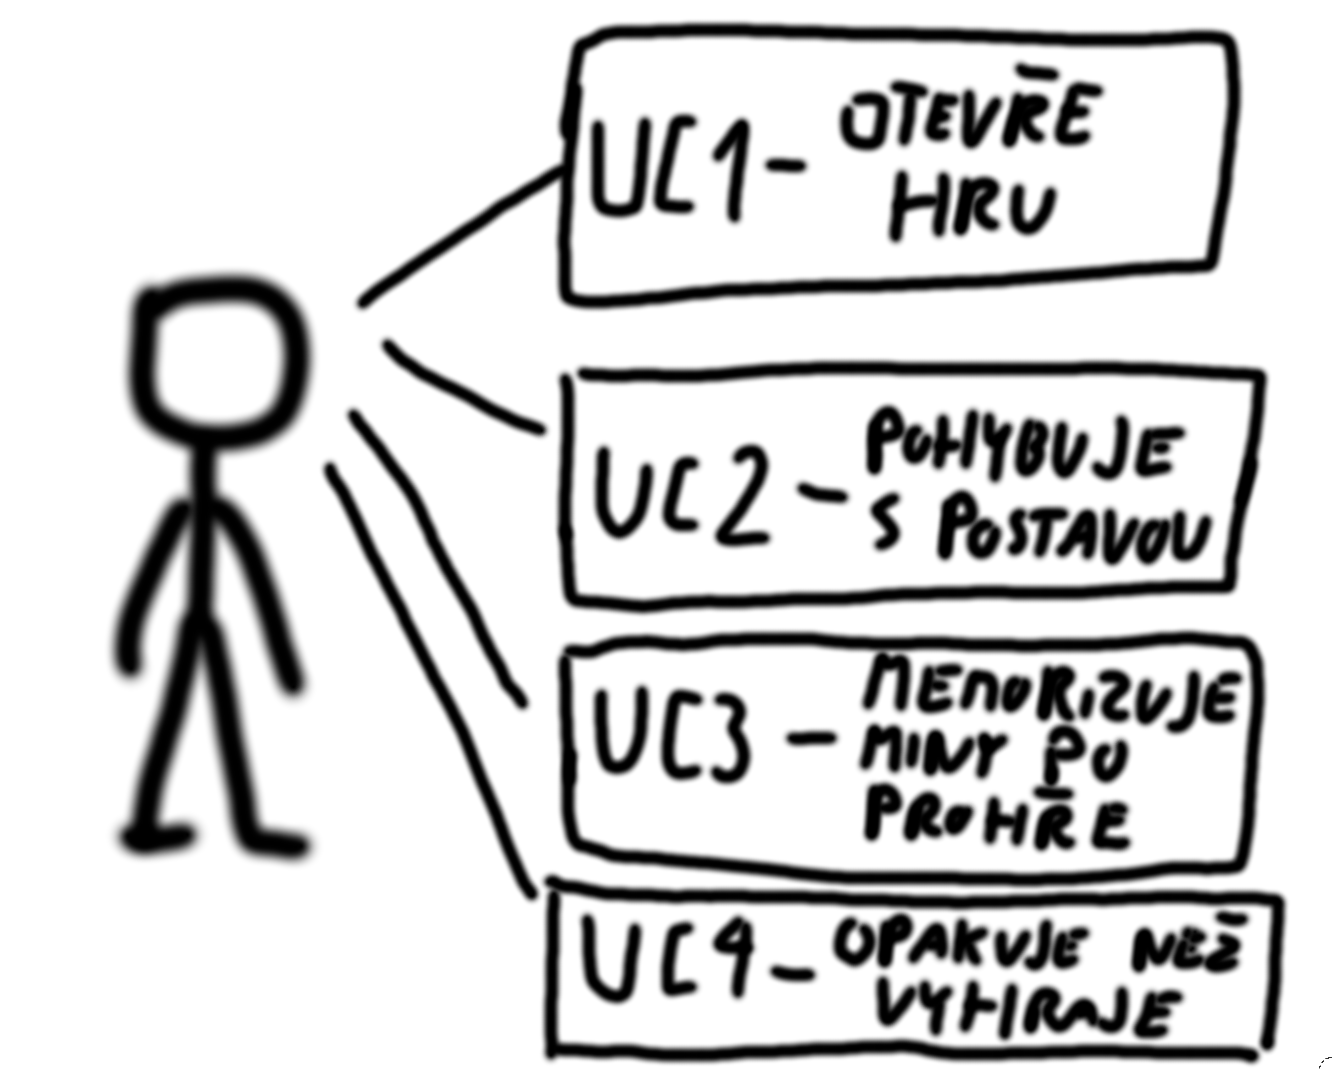 UC1 - OTEVŘE
HRU
UC2 - POHYBUJE
S POSTAVOU
UC3 - MEMORIZUJE
MINY PO
PROHŘE
UC4 - OPAKUJE NEŽ
VYHRAJE